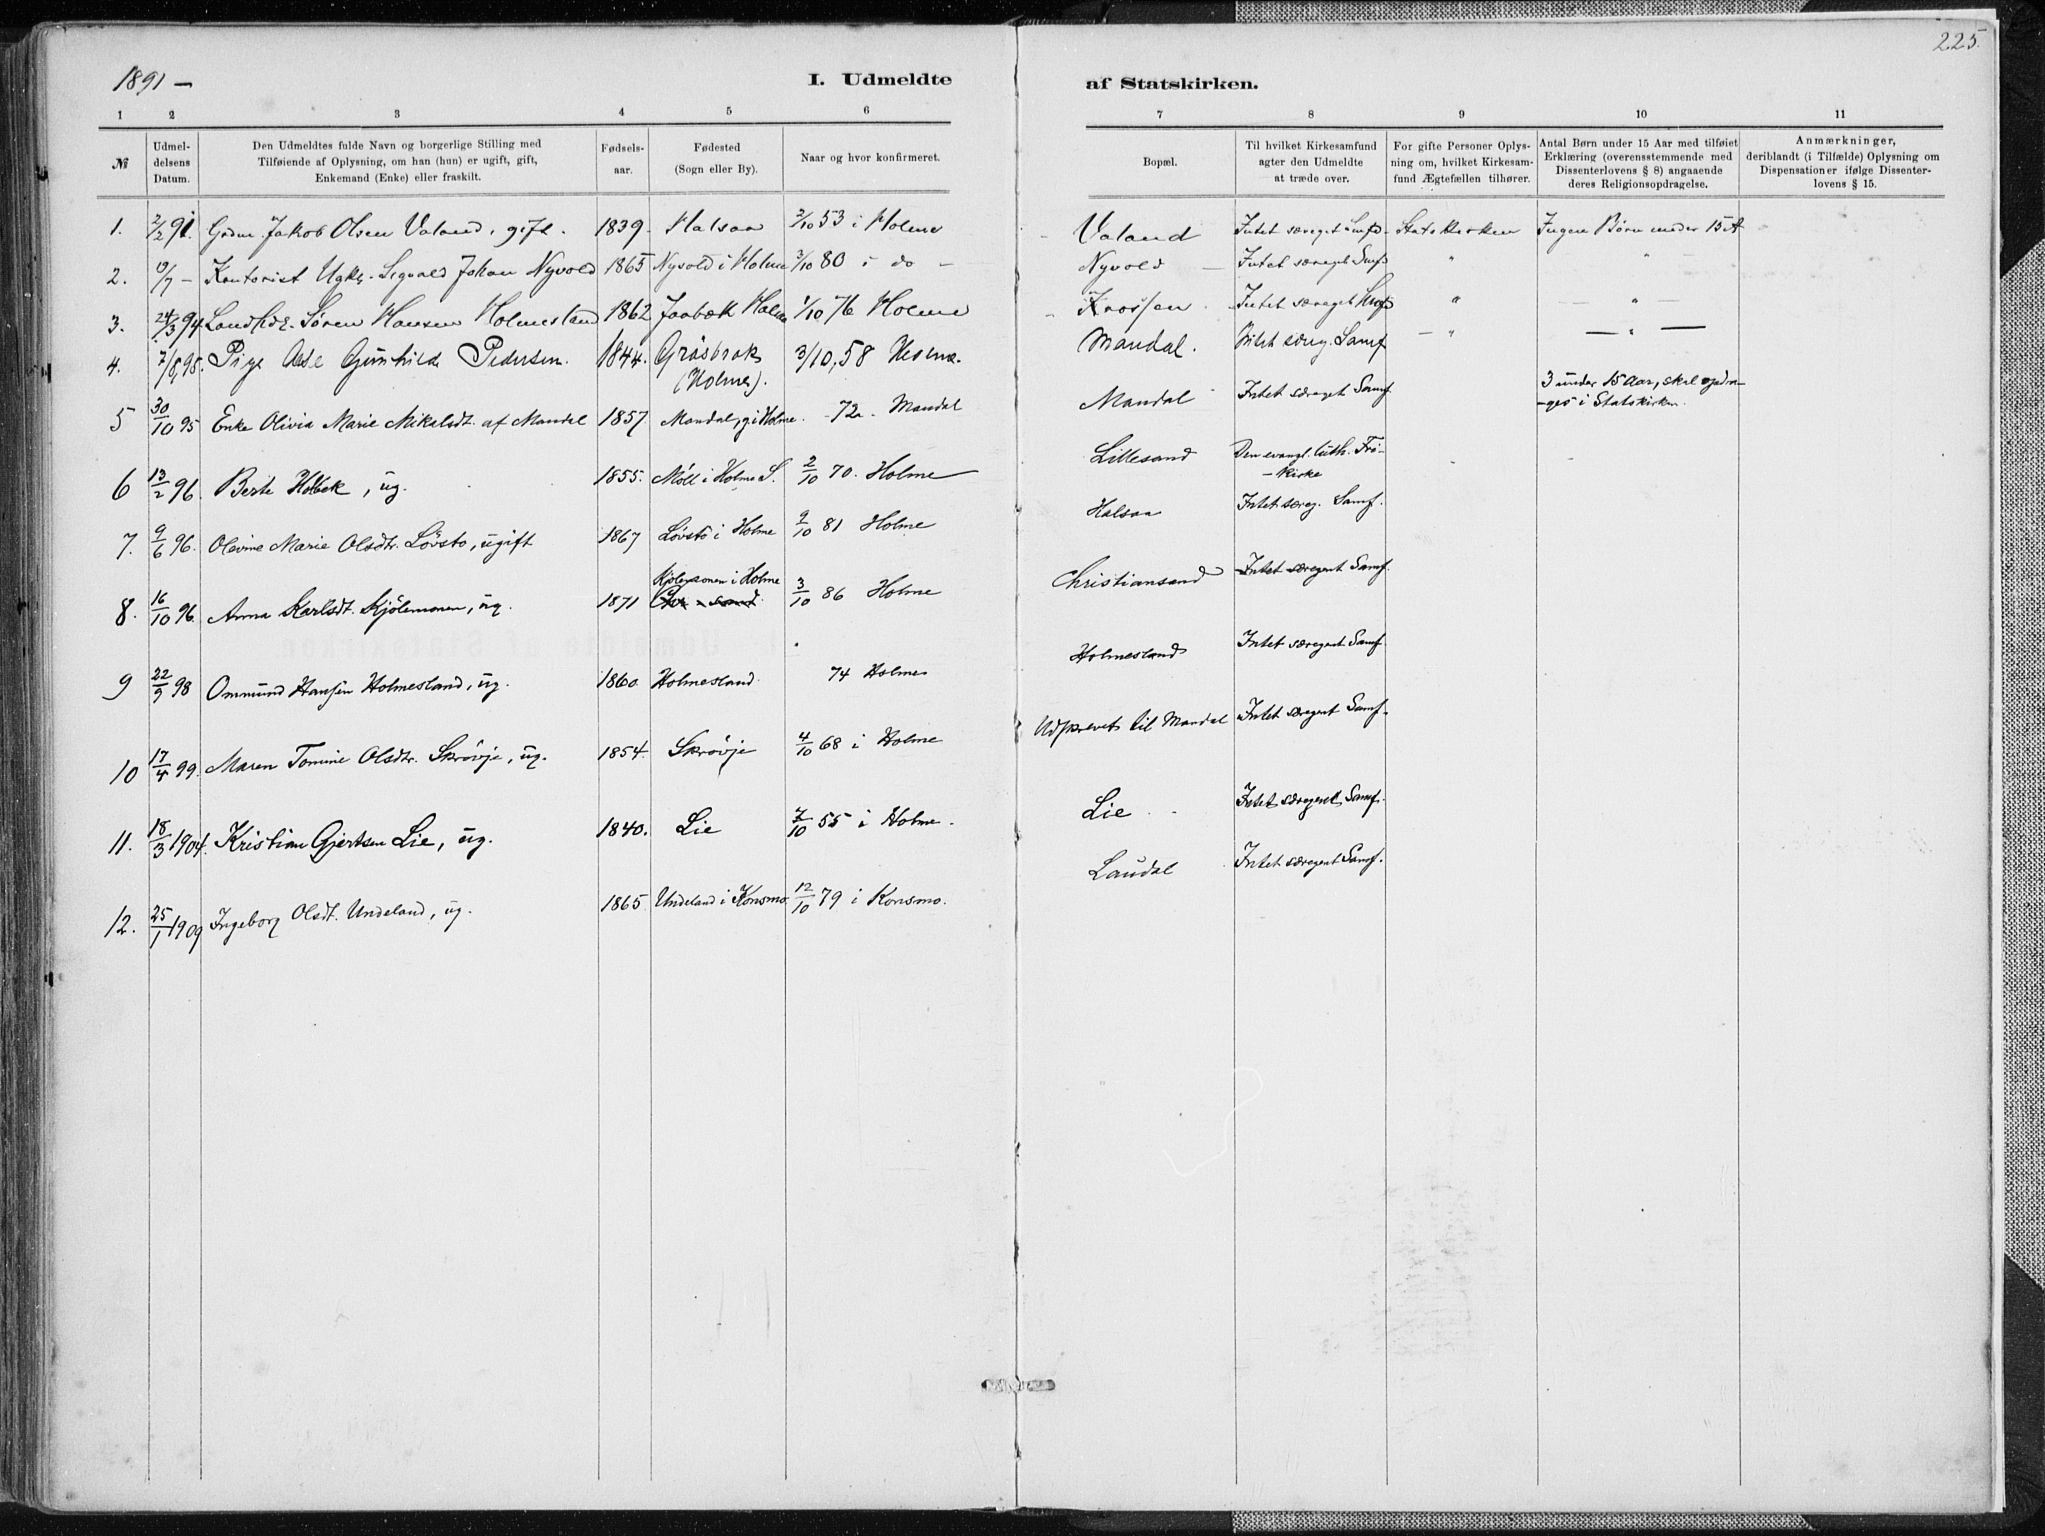 225.
1891 –
I. Udmeldte af Statskirken.
1 2 3 4 5 6 7 8 9 10 11
№
Udmel-
delsens
Datum.
Den Udmeldtes fulde Navn og borgerlige Stilling med
Tilføiende af Oplysning, om han (hun) er ugift, gift,
Enkemand (Enke) eller fraskilt.
Fødsels-
aar.
Fødested
(Sogn eller By).
Naar og hvor konfirmeret.
Bopæl.
Til hvilket Kirkesamfund
agter den Udmeldte
at træde over.
For gifte Personer Oplys-
ning om, hvilket Kirkesam-
fund Ægtefællen tilhører.
Antal Børn under 15 Aar med tilføiet
Erklæring (overensstemmende med
Dissenterlovens § 8) angaaende
deres Religionsopdragelse.
Anmærkninger,
deriblandt (i Tilfælde) Oplysning om
Dispensationer ifølge Dissenter-
lovens § 15.
1. 2/2 91. Grdm. Jakob Olsen Valand, gift. 1839 Halsaa 2/10 53 i Holme Valand Intet særeget Samfd. Statskirken Ingen Børn under 15 A
2. 19/7 – Kontorist Ugk. Sigvald Johan Nyvold 1865 Nyvold i Holme 3/10 80 i do – Nyvold – Intet særeget Samfd " "
3. 24/3 94 Landhdl. Søren Hansen Holmesland 1862 Jaabæk Holme 1/10 76 Holme Krossen Intet særeget Samfd " — " —
4. 7/8, 95. Pige Gunhilde Pedersen. 1844. Gråsbrok
(Holme). 3/10, 58 Holme. Mandal. Intet særeg. Samf — " — " —
5 30/10 95 Enke Olivia Marie Mikalsdt. af Mandal 1857. Mandal, g i Holme. - 72 - Mandal Mandal Intet særeget Samf 3 under 15 Aar, skal opdra-
-ges i Statskirken.
6 13/2 96. Berte Holbek, ug. 1855. Möll i Holme S. 2/10 70. Holme Lillesand Den evangl. luth. Fri-
-kirke
7. 9/6 96. Olevine Marie Olsdtr. Lövstö, ugift 1867 Lövstö i Holme 9/10 81 Holme Halsaa Intet særeg. Samf.
8. 16/10 96. Anna Karlsdt. Kjölemonen, ug. 1871 Kjölemonen i Holme
3/10 86 Holme Christiansand Intet særegent Samf.
9 22/9 98 Ommund Hansen Holmesland, ug. 1860. Holmesland. 74 Holme Holmesland Intet særegent Samf.
10 17/4 99. Maren Tomine Olsdtr. Skrövje, ug. 1854. Skrövje 4/10 68 i Holme Udskrevet til Mandal Intet særegent Samf.
11. 18/3 1904. Kristian Gjertsen Lie, ug. 1840. Lie 7/10 55 i Holme. Lie Intet særegent Samf.
12. 25/1 1909 Ingeborg Olsdt. Undeland, ug. 1865. Undeland i Konsmo. 12/10 79 i Konsmo. Laudal Intet særegent Samf.